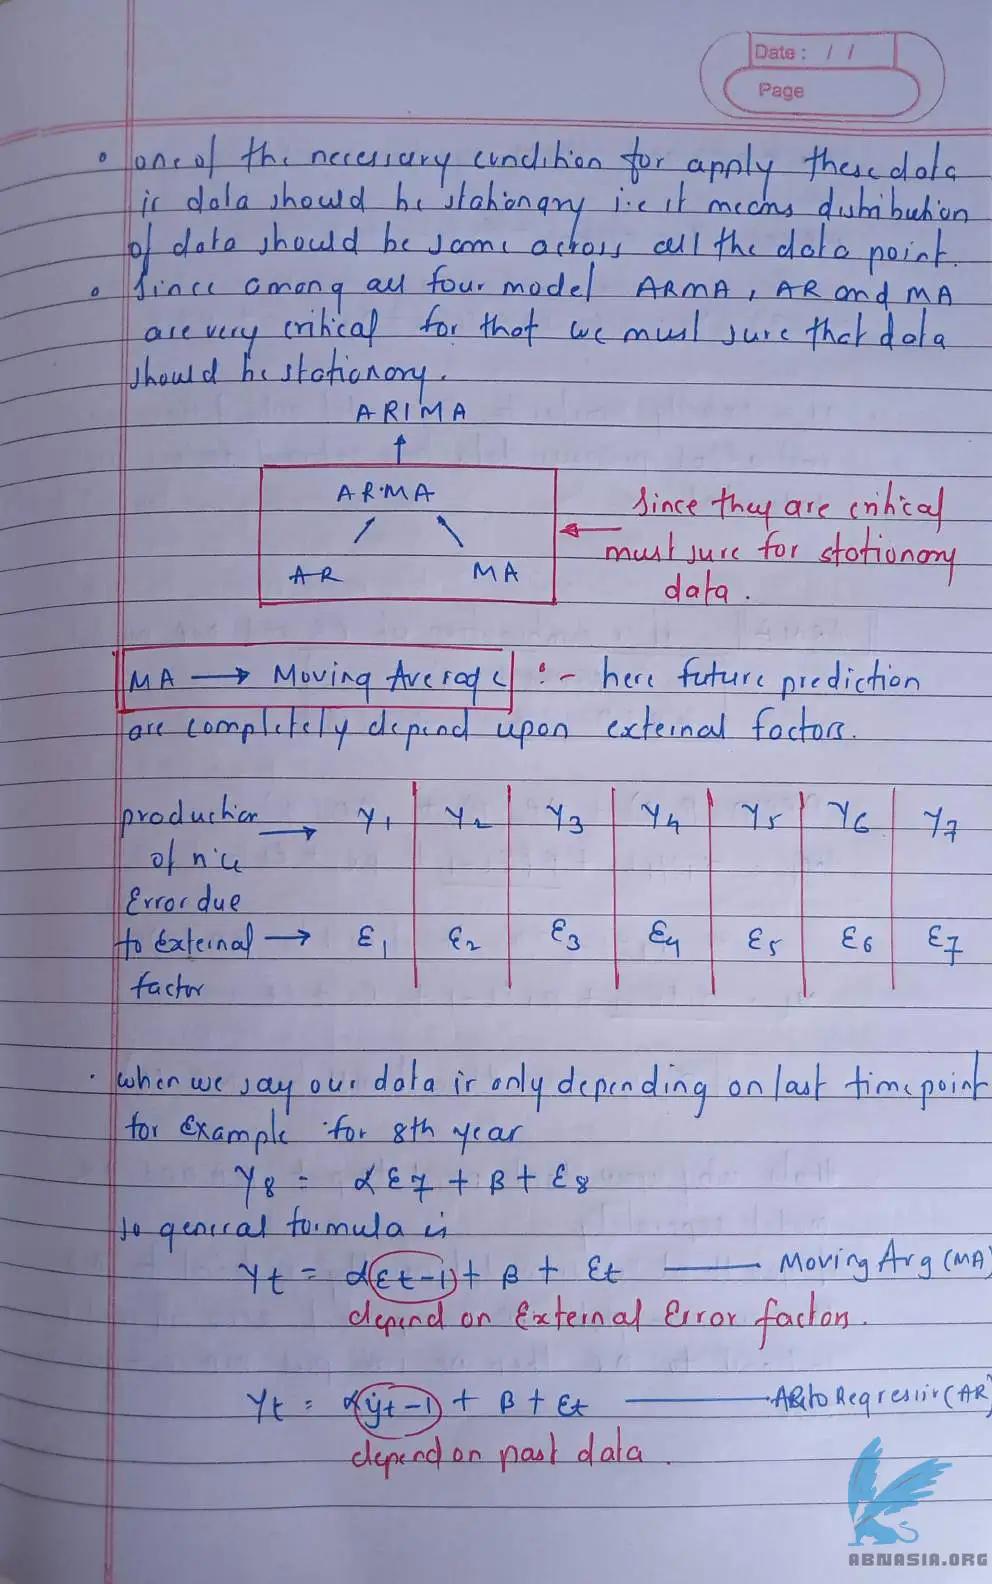 Date : / /
Page
• one of the necessary condition for apply these data
is data should be stationary i.e it means distribution
of data should be same across all the data point.
• Since among all four model ARMA, AR and MA
are very critical for that we must sure that data
should be stationary.
ARIMA
↑
ARMA
AR MA
← Since they are critical
must sure for stationary
data.
MA → Moving Average :- here future prediction
are completely depend upon external factors.
production → Y1 Y2 Y3 Y4 Y5 Y6 Y7
of rice
Error due
to External → ε1 ε2 ε3 ε4 ε5 ε6 ε7
factor
• when we say our data is only depending on last time point
for example for 8th year
Y8 = αε7 + β + ε8
so general formula is
Yt = α(εt-1) + β + εt —— Moving Avg (MA)
depend on External Error factors.
Yt = α(yt-1) + β + εt —— AutoRegressiv (AR)
depend on past data.
ABNASIA.ORG